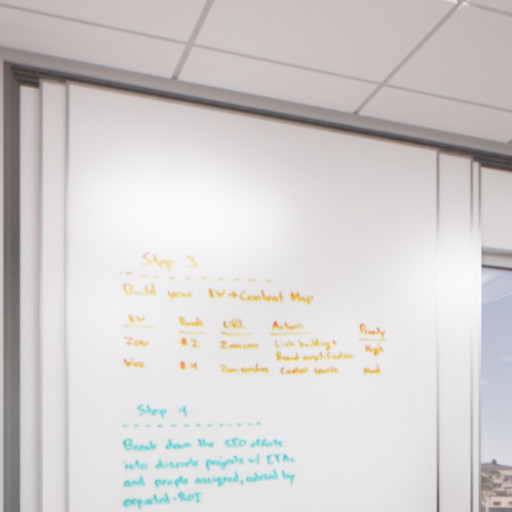 Step 3
Build your KW→Content Map
KW Rank URL Action Priority
Zou #2 Zou.com Link building + High
Brand amplification
#4 Content Med
Step 4
Break down the SEO efforts
into discrete projects w/ ETAs
and people assigned, ordered by
expected-ROI